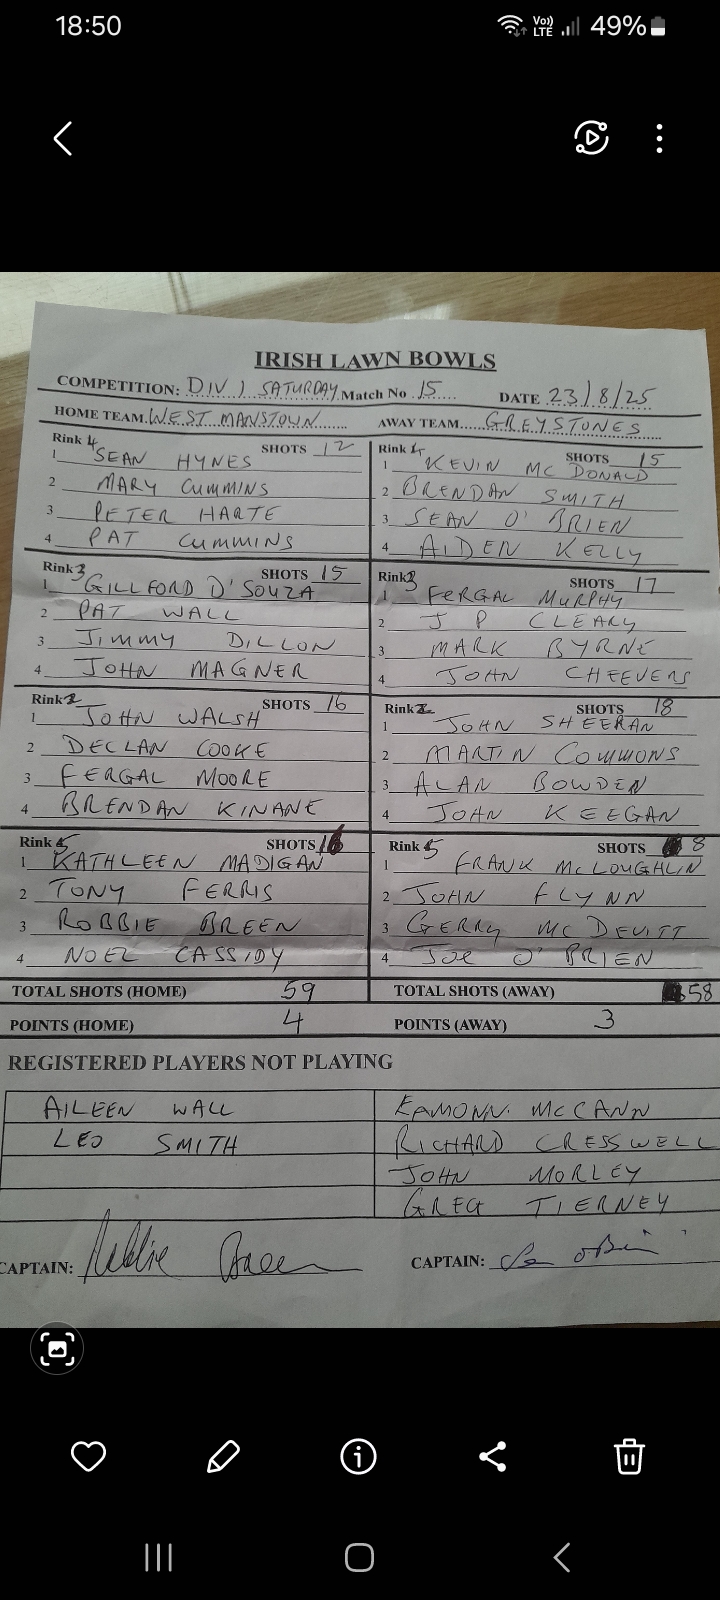 18:50
Vo)) LTE 49%
IRISH LAWN BOWLS
COMPETITION: DIV 1 SATURDAY Match No 15 DATE 23/8/25
HOME TEAM WEST MANSTOWN AWAY TEAM GREYSTONES
Rink 4 SHOTS 12
1 SEAN HYNES
2 MARY CUMMINS
3 PETER HARTE
4 PAT CUMMINS
Rink 4 SHOTS 15
1 KEVIN MC DONALD
2 BRENDAN SMITH
3 SEAN O'BRIEN
4 AIDEN KELLY
Rink 3 SHOTS 15
1 GILLFORD D'SOUZA
2 PAT WALL
3 JIMMY DILLON
4 JOHN MAGNER
Rink 3 SHOTS 17
1 FERGAL MURPHY
2 J P CLEARY
3 MARK BYRNE
4 JOHN CHEEVERS
Rink 2 SHOTS 16
1 JOHN WALSH
2 DECLAN COOKE
3 FERGAL MOORE
4 BRENDAN KINANE
Rink 2 SHOTS 18
1 JOHN SHEERAN
2 MARTIN COMMONS
3 ALAN BOWDEN
4 JOHN KEEGAN
Rink 5 SHOTS 16
1 KATHLEEN MADIGAN
2 TONY FERRIS
3 ROBBIE BREEN
4 NOEL CASSIDY
Rink 5 SHOTS 8
1 FRANK McLOUGHLIN
2 JOHN FLYNN
3 GERRY MC DEVITT
4 JOE O'BRIEN
TOTAL SHOTS (HOME) 59 TOTAL SHOTS (AWAY) 58
POINTS (HOME) 4 POINTS (AWAY) 3
REGISTERED PLAYERS NOT PLAYING
AILEEN WALL
LEO SMITH
EAMONN MCCANN
RICHARD CRESSWELL
JOHN MORLEY
GREG TIERNEY
CAPTAIN: Robbie Breen CAPTAIN: O'Brien